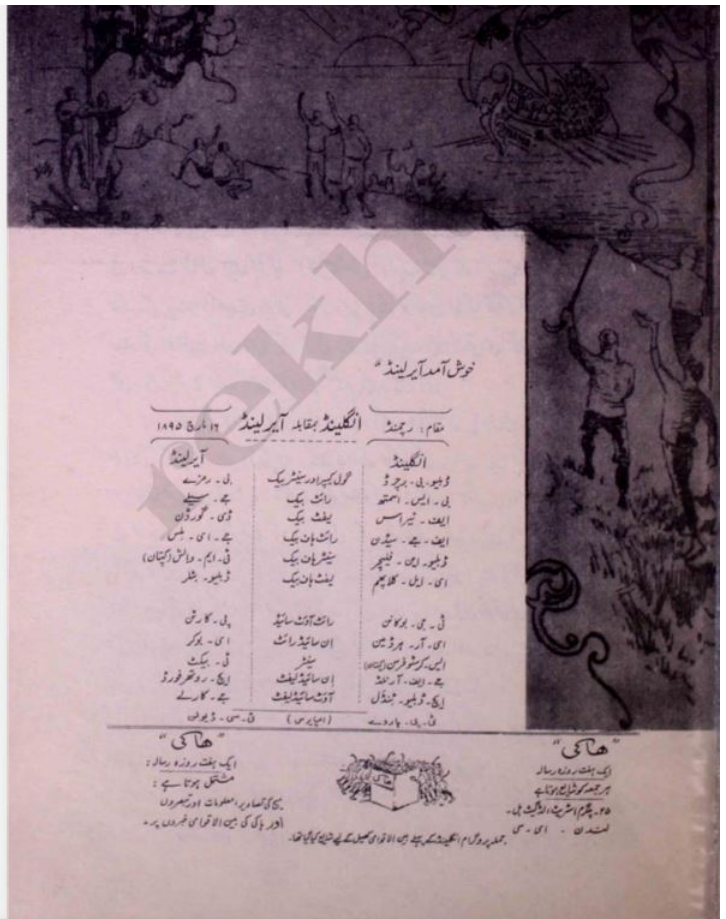 خوش آمد آیرلینڈ"
مقام: رچمنڈ انگلینڈ بمقابلہ آیرلینڈ ۱۶ مارچ ۱۸۹۵
انگلینڈ آیرلینڈ
ڈبلیو۔ بی۔ برچرڈ گول کیپر اور سینٹر بیک بی۔ رمزے
بی۔ ایس۔ اسمتھ رائٹ بیک جے۔ سیلے
ایف۔ ٹیراس لیفٹ بیک ڈی۔ گورڈن
ایف۔ جے۔ سیڈی رائٹ ہاف بیک جے۔ ای۔ ملس
ڈبلیو۔ این۔ فلیچر سینٹر ہاف بیک ٹی۔ ایم۔ والش (کپتان)
ای۔ ایل۔ کلاپھم لیفٹ ہاف بیک ڈبلیو۔ بٹلر
ٹی۔ جی۔ بوکانن رائٹ آؤٹ سائیڈ پی۔ کارٹن
ای۔ آر۔ ہرڈمین ان سائیڈ رائٹ ای۔ بوکر
ایس کرسٹوفرسن (کپتان) سینٹر ٹی۔ بیکٹ
جے۔ ایف۔ آرنلڈ ان سائیڈ لیفٹ ایچ۔ رودھرفورڈ
ایچ۔ ڈبلیو۔ ٹنڈل آؤٹ سائیڈ لیفٹ جے۔ کارلے
ٹی۔ بی۔ ہاروے (امپائرس) ٹی۔ سی۔ ڈیولن
"ھاکی"
ایک ہفت روزہ رسالہ
ہر جمعہ کو شایع ہوتا ہے
۲۵۔ پلگرم اسٹریٹ، لڈگیٹ ہل۔
لندن۔ ای۔ سی
ہاکی
"ھاکی"
ایک ہفت روزہ رسالہ:
مشتمل ہوتا ہے:
میچ کی تصاویر، معلومات اور تبصروں
اور ہاکی کی بین الاقوامی خبروں پر۔
جملہ پروگرام انگلینڈ کے پہلے بین الاقوامی کھیل کے لیے شایع کیا گیا تھا۔
rekh